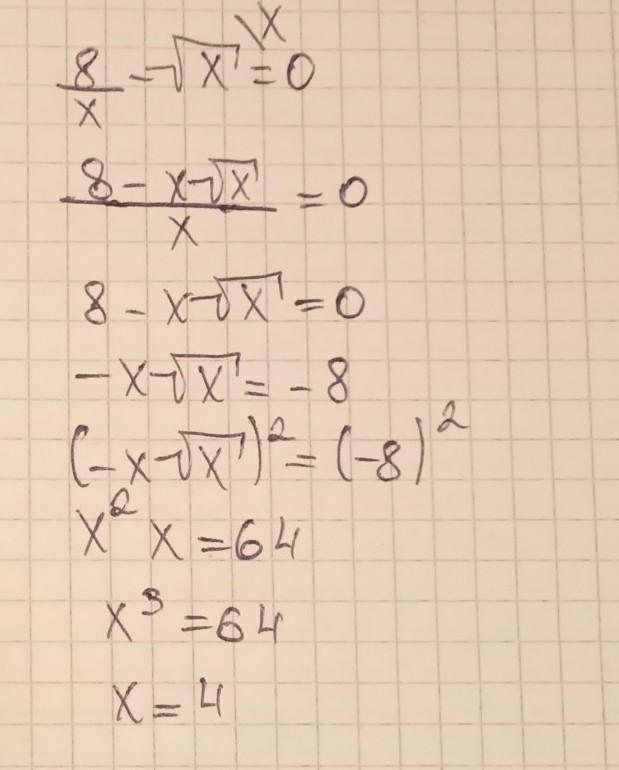 8/x - √x \x = 0
(8 - x√x)/x = 0
8 - x√x = 0
-x√x = -8
(-x√x)² = (-8)²
x² x = 64
x³ = 64
x = 4